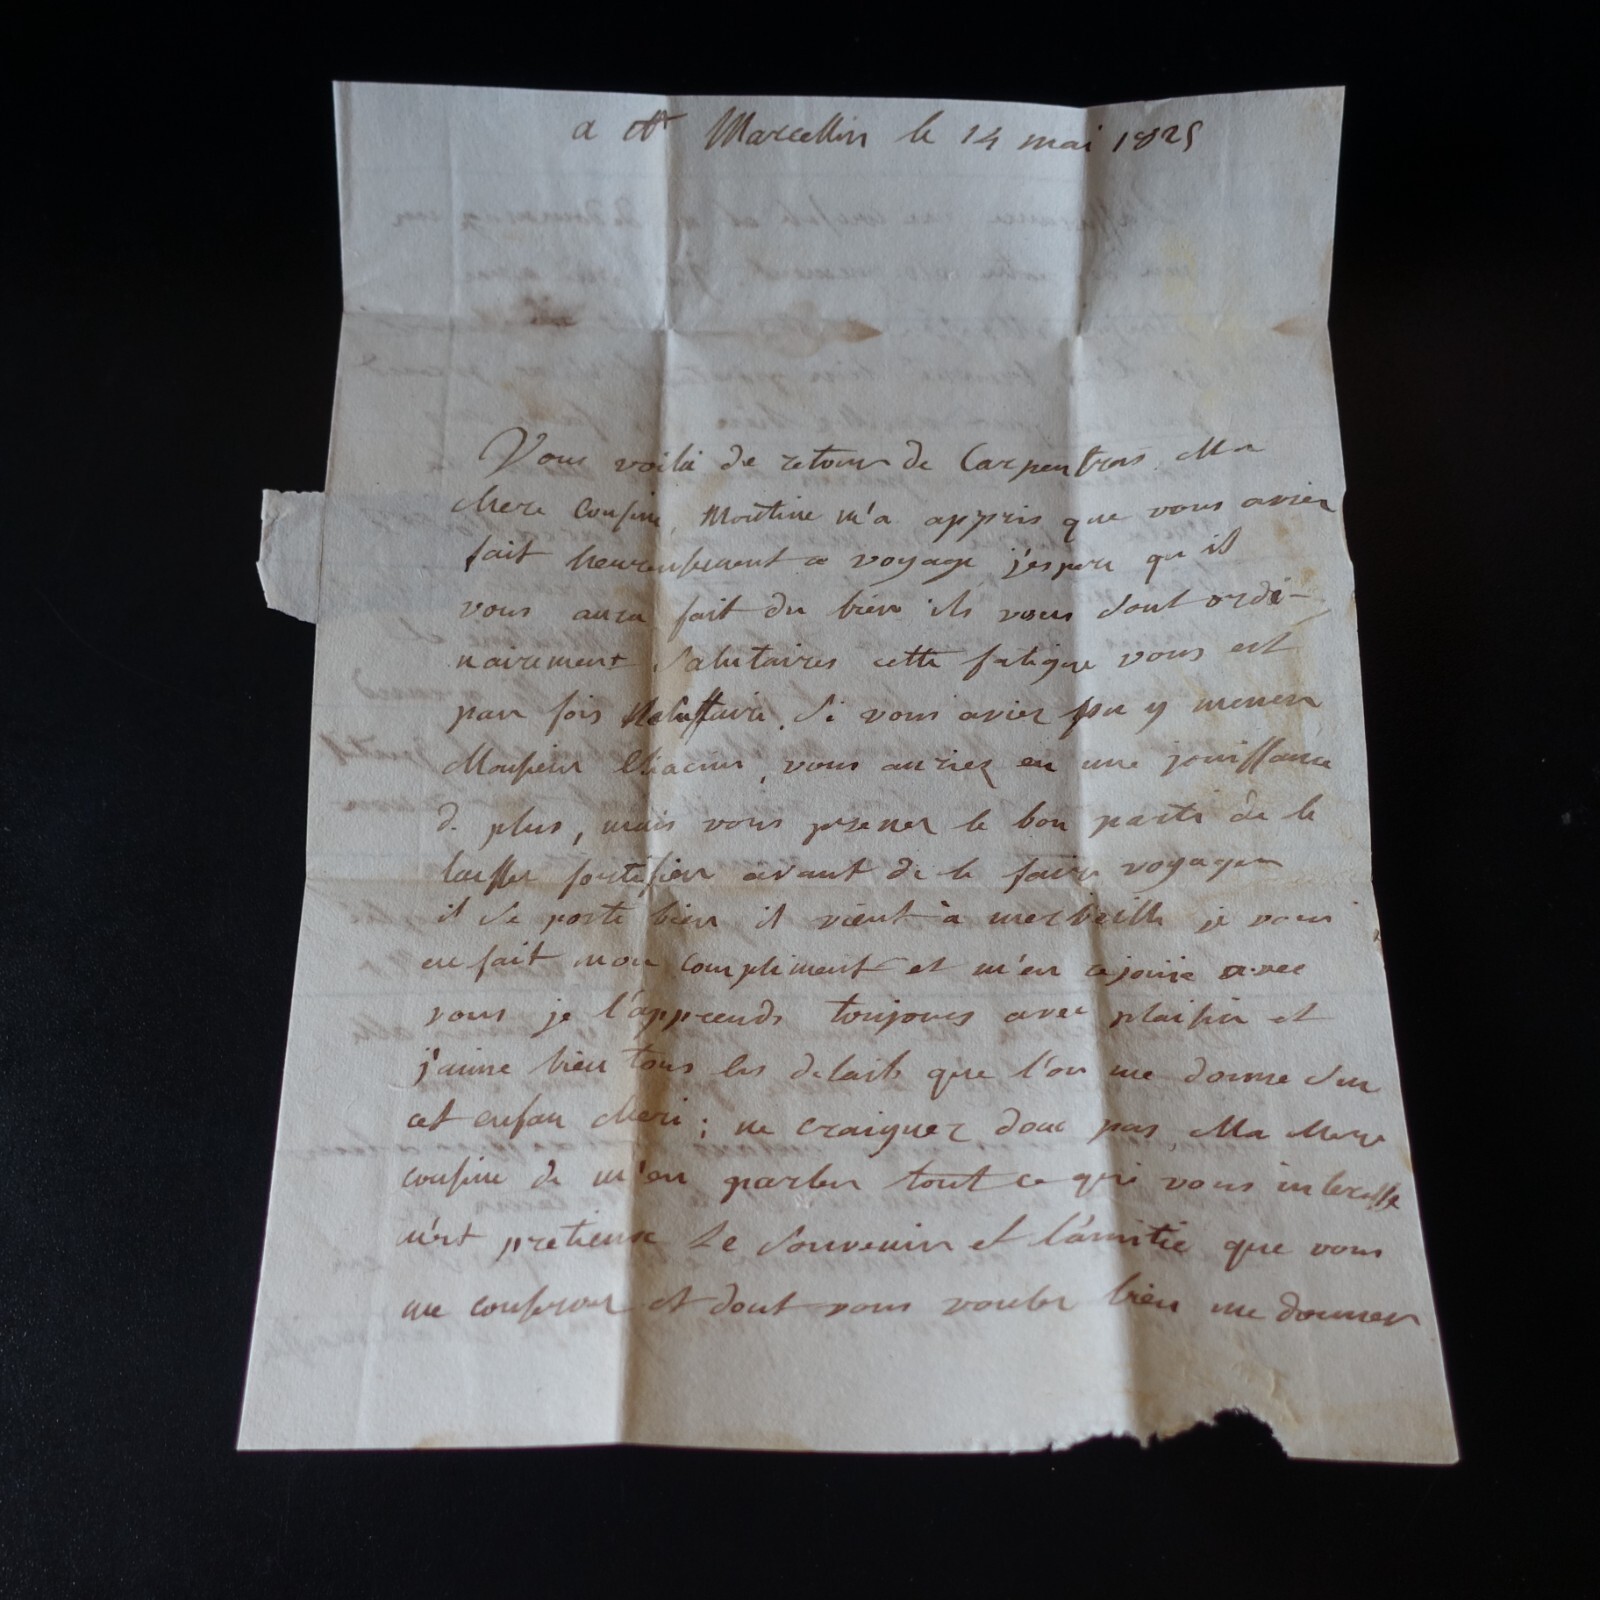 a St Marcellin le 14 mai 1825
Vous voilà de retour de Carpentras Ma
chere cousine, m'a appris que vous aviez
fait heureusement ce voyage j'espere qu'il
vous aura fait du bien ils vous sont ordi-
nairement salutaires cette fatigue vous est
par fois salutaire. Si vous aviez pu y mener
Monsieur, vous auriez eu une jouissance
de plus, mais vous prenez le bon parti de le
laisser fortifier avant de le faire voyager
il se porte bien il vient à merveille je vous
en fait mon compliment et m'en rejouie avec
vous je l'apprends toujours avec plaisir et
j'aime bien tous les details que l'on me donne sur
cet enfan cheri ; ne craignez donc pas Ma chere
cousine de m'en parler tout ce qui vous interesse
m'est pretieux le souvenir et l'amitié que vous
me conservez et dont vous voulez bien me donner